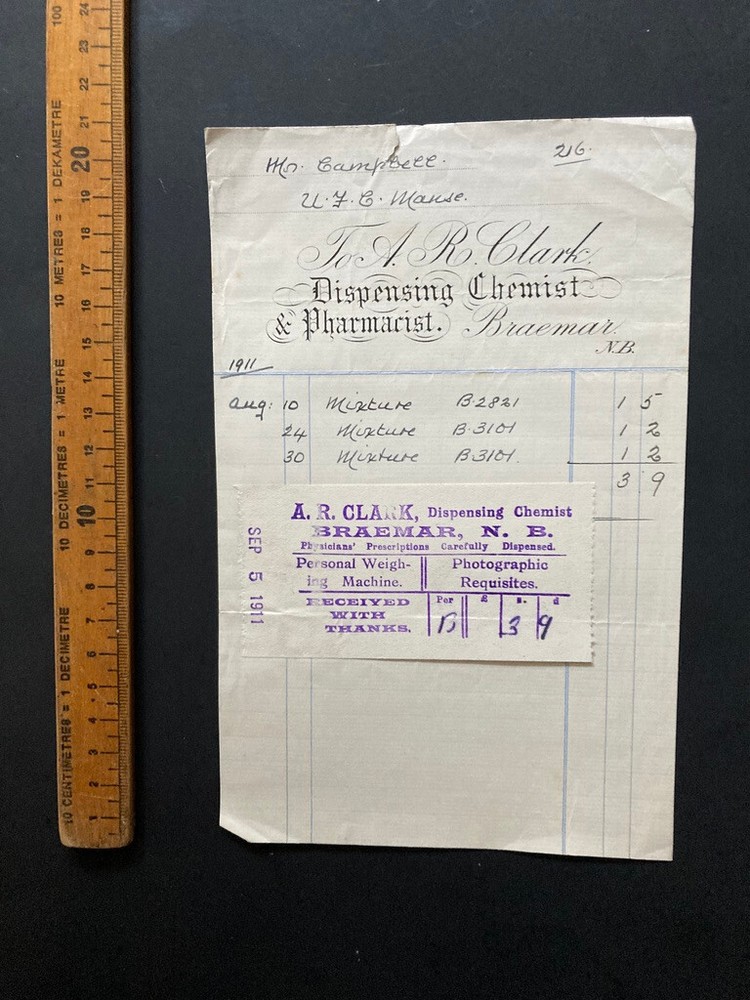 Mr. Campbell.
216.
U.F.C. Manse.
To A. R. Clark.
Dispensing Chemist
& Pharmacist. Braemar.
N.B.
1911
Aug: 10 Mixture B.2821 1 5
24 Mixture B.3101 1 2
30 Mixture B.3101. 1 2
3 9
A. R. CLARK, Dispensing Chemist
BRAEMAR, N. B.
Physicians' Prescriptions Carefully Dispensed.
Personal Weigh-
ing Machine.
Photographic
Requisites.
RECEIVED
WITH
THANKS.
Per £ s. d
3 9
SEP 5 1911
10 CENTIMETRES = 1 DECIMETRE
10 DECIMETRES = 1 METRE
10 METRES = 1 DEKAMETRE
100
1 2 3 4 5 6 7 8 9 10 11 12 13 14 15 16 17 18 19 20 21 22 23 24